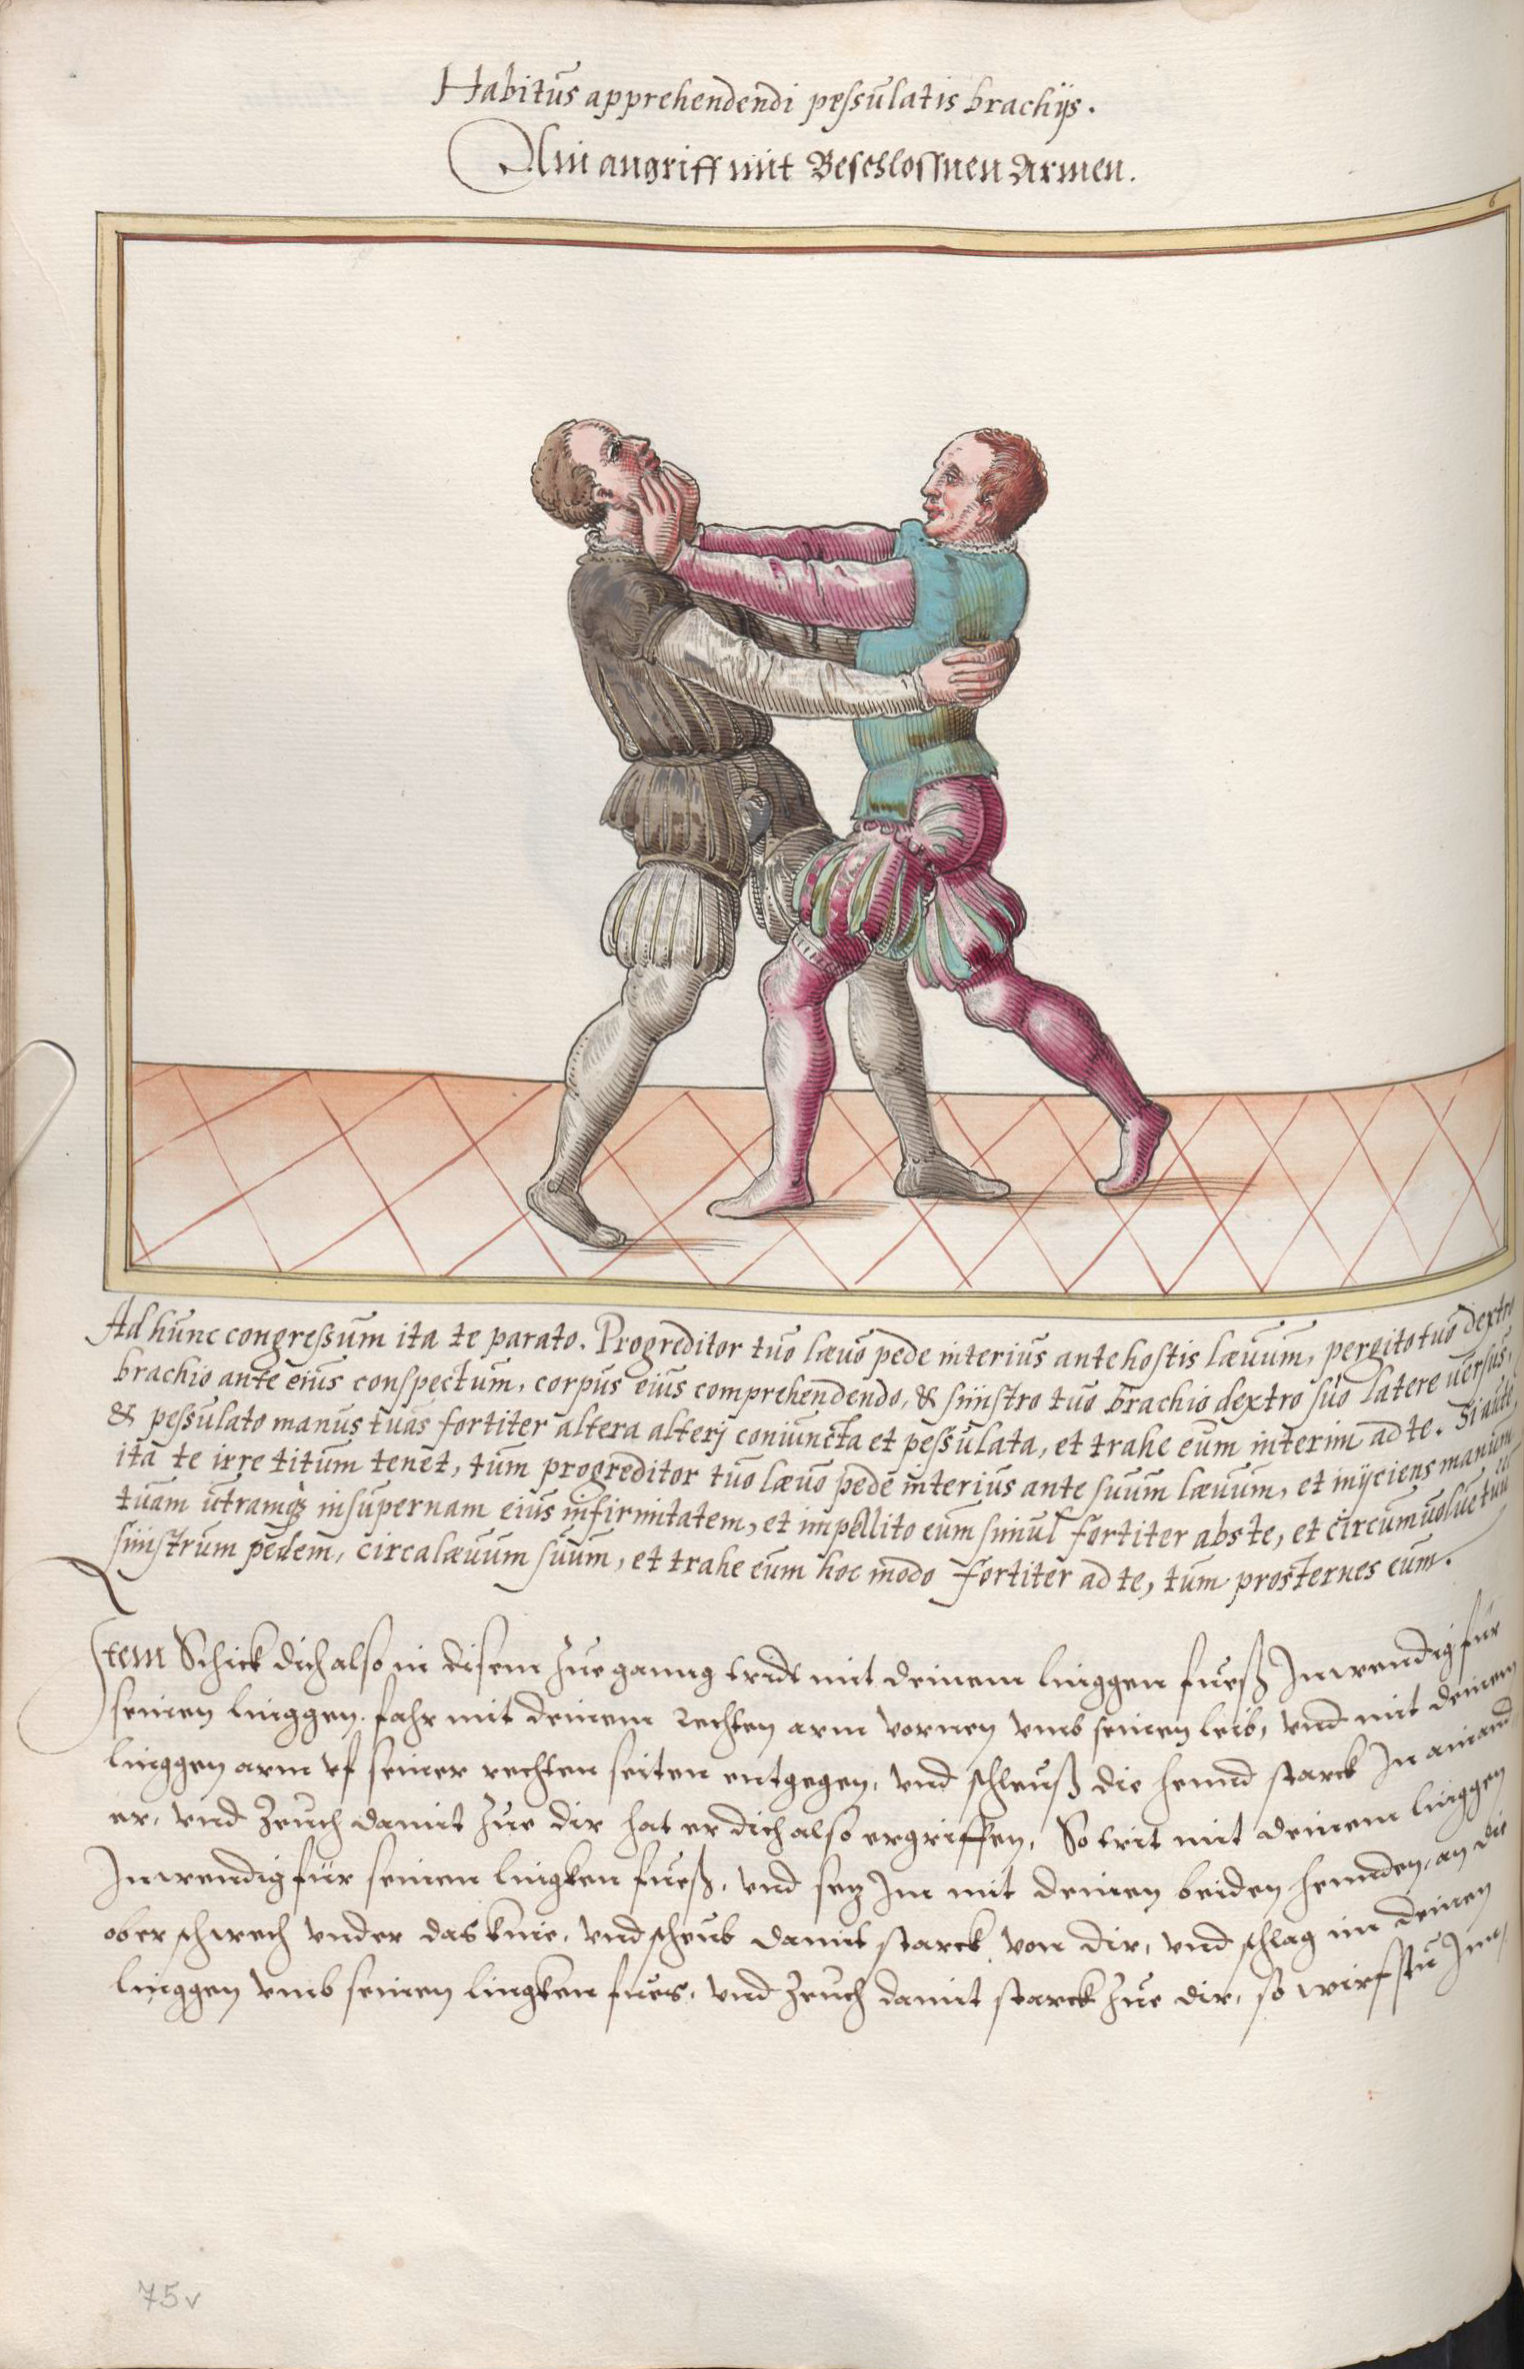 Habitus apprehendendi pessulatis brachijs.
Ain angriff mit Beschlossnen Armen.
6
Ad hunc congressum ita te parato. Progreditor tuo lævo pede interius ante hostis lævum, pergito tuo dextro
brachio ante eius conspectum, corpus eius comprehendendo, & sinistro tuo brachio dextro suo latere versus,
& pessulato manus tuas fortiter altera alterj coniuncta et pessulata, et trahe eum interim ad te. Si aute
ita te irretitum tenet, tum progreditor tuo lævo pede interius ante suum lævum, et inijciens manum
tuam utramq₃ in supernam eius infirmitatem, et impellito eum simul fortiter abs te, et circumvolue tuu
sinistrum pedem, circa lævum suum, et trahe eum hoc modo fortiter ad te, tum prosternes eum.
Item Schick dich also in disem zueganng tridt mit deinem linggen fuesß Inwendig für
seinen linggen. fahr mit deinem rechten arm vornen vmb seinen leib, vnd mit deinem
linggen arm vf seiner rechten seiten entgegen, vnd schleuß die hennd starck In ainand
er, vnd zeuch damit zue dir hat er dich also ergriffen, So trit mit deinem linggen
Inwendig für seinen lingken fuesß, vnd setz Im mit deinen beiden hennden, an die
ober schwech vnder das knie, vnd scheub damit starck von dir, vnd schlag im deinen
linggen vmb seinen lingken fues, vnd zeuch damit starck zue dir, so wirfstu Im,
75v